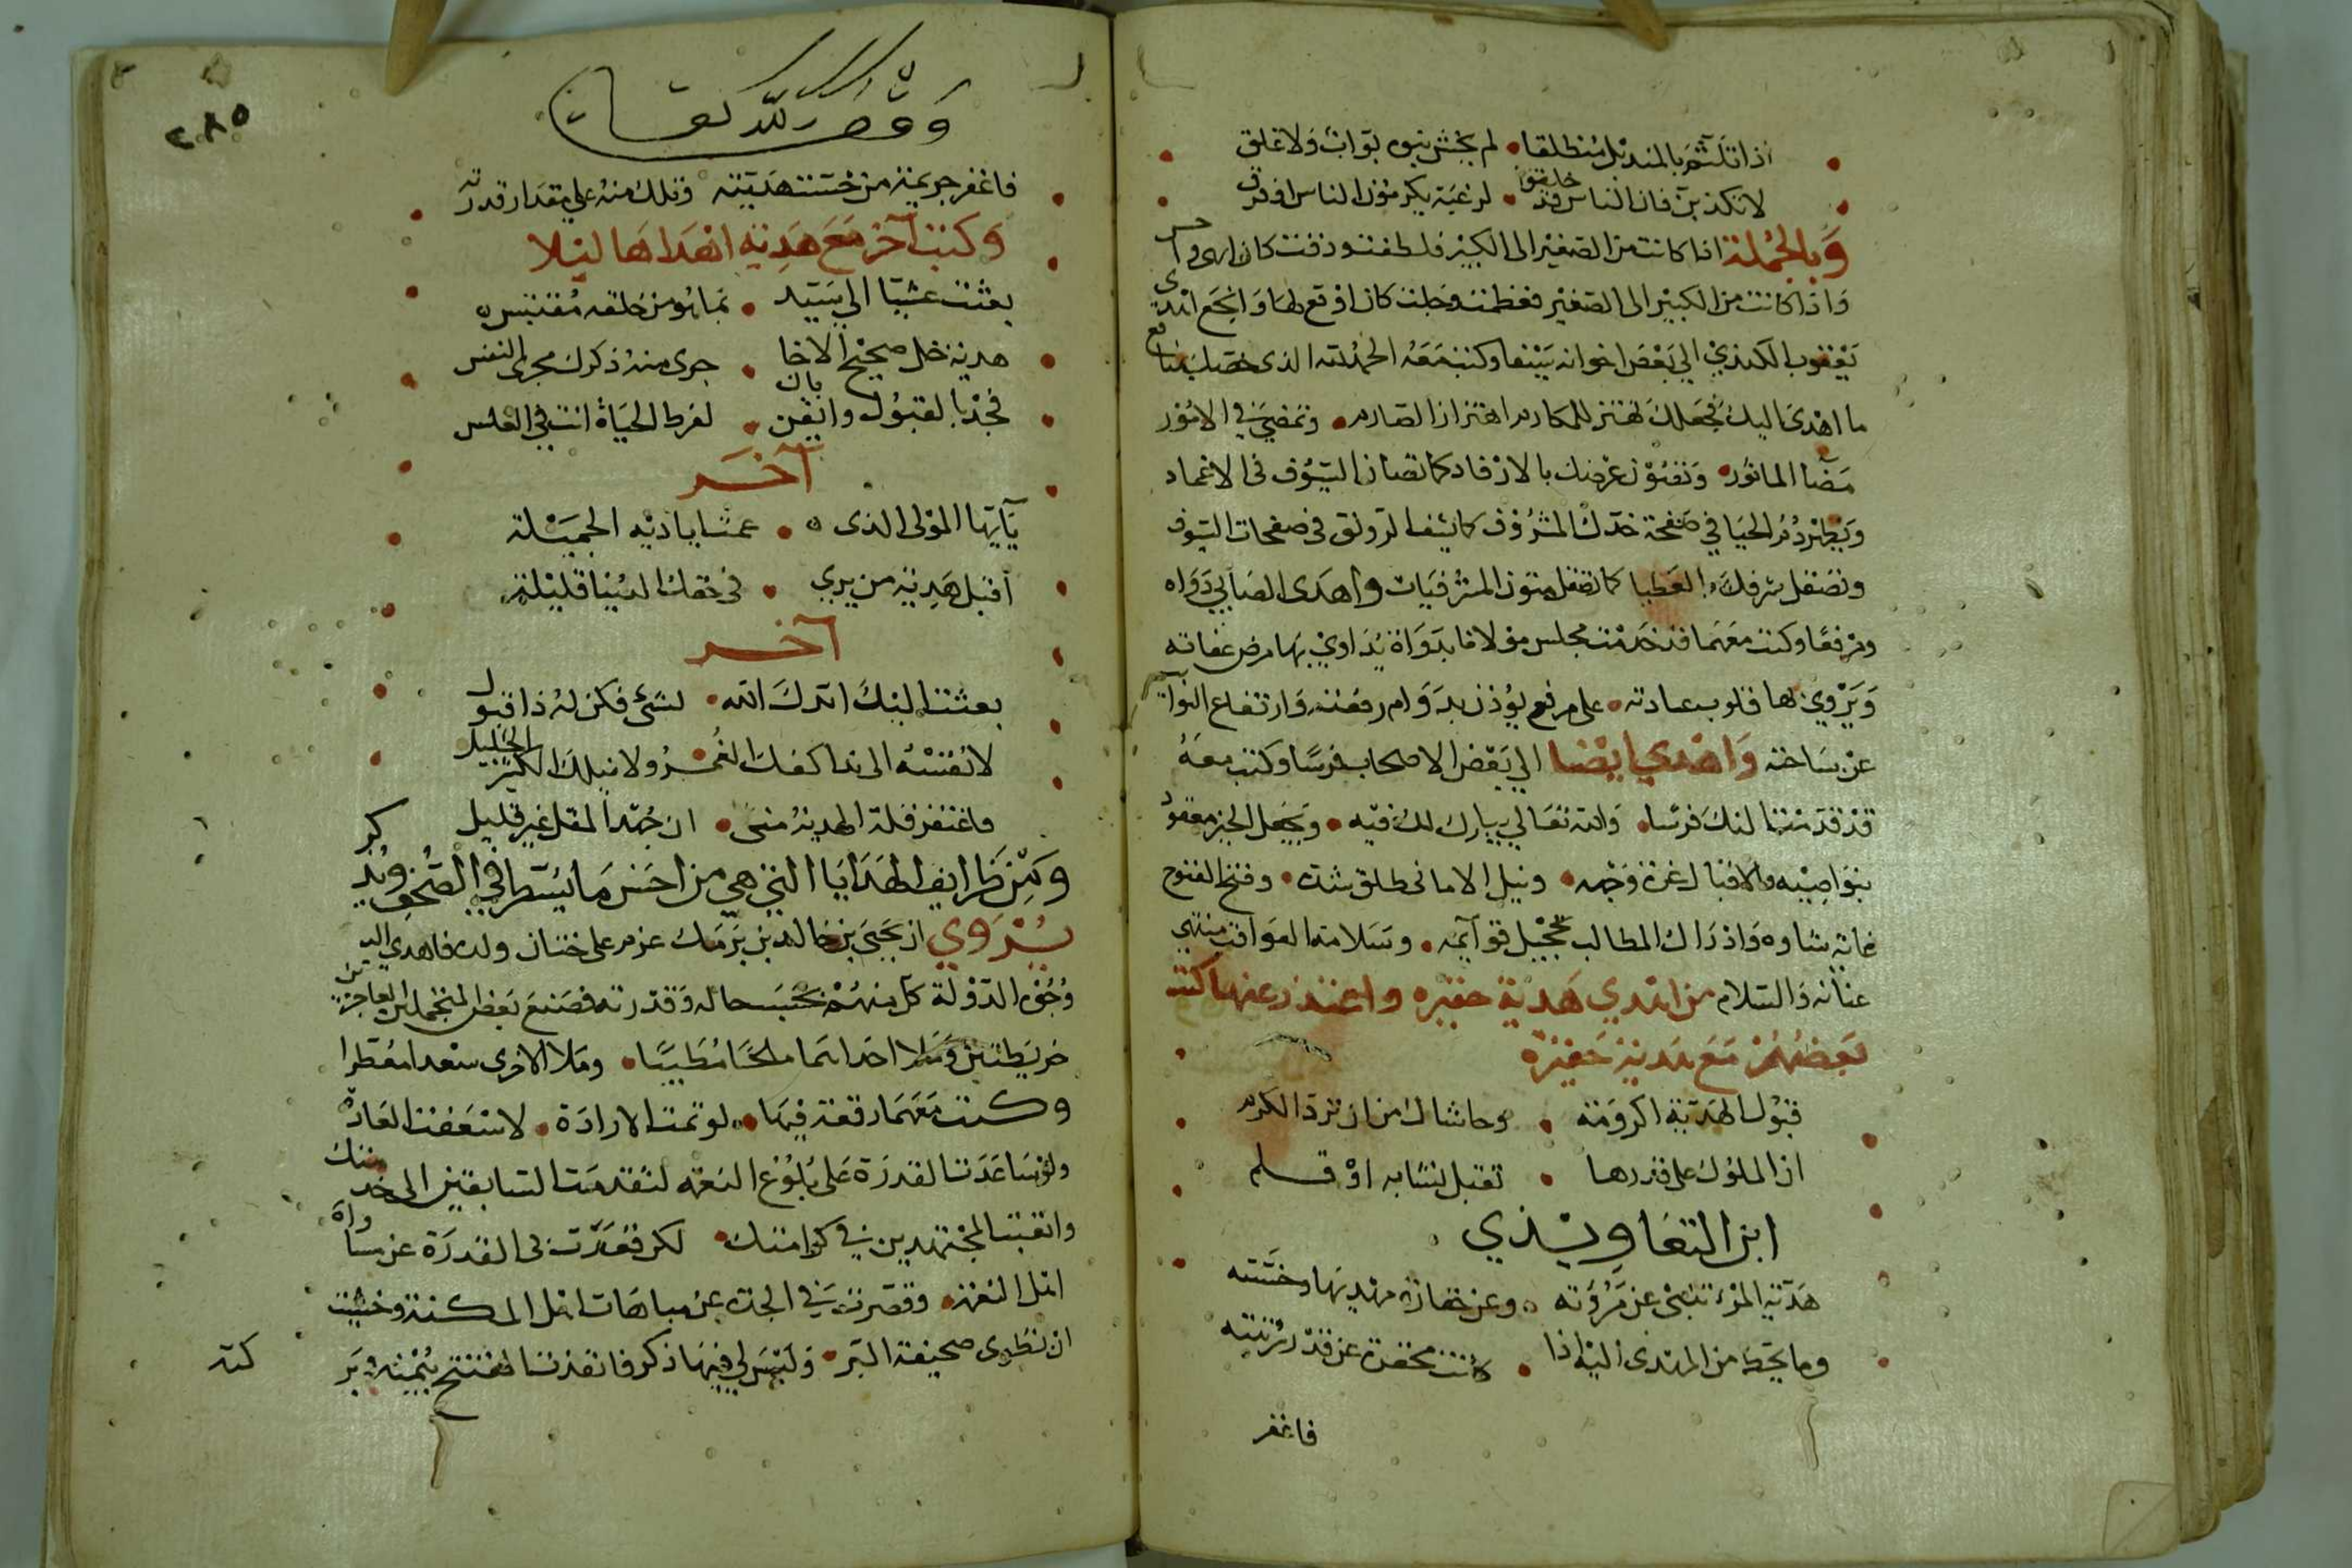 اذا تلثم بالمنديل منطلقا • لم يخش نبوة بواب ولا غلق
لا تكذبن فان الناس قد خلقوا • لرغبة يكرمون الناس او فرق
وبالجملة اذا كانت من الصغير الى الكبير فلطفت ودقت كان ابهى و
واذا كانت من الكبير الى الصغير فعظمت وجلت كان اوقع لها وانجع اهدى
يعقوب الكندي الى بعض اخوانه سيفا وكتب معه الحمد لله الذى خصك بمنافع
ما اهدى اليك فجعلك تهتز للمكارم اهتزاز الصارم • وتمضى في الامور
مضا الماثور • وتصون عرضك بالارفاد كما تصان السيوف فى الاغماد
ويطرد دم الحيا في صفحة خدك المشروف كما يشف الرونق فى صفحات السيوف
وتصقل شرفك بالعطيا كما تصقل متون المشرفيات واهدى الصابي دواه
ومرفعا وكتب معهما قد خدمت مجلس مولانا بدواة يداوي بها مرض عفاته
ويروي بها قلوب عداته • على مرفع يؤذن بدوام رفعته وارتفاع النوائب
عن ساحته واهدي ايضا الي بعض الاصحاب فرسا وكتب معه
قد قدمت اليك فرسا • والله تعالي يبارك لك فيه • ويجعل الخير معقود
بنواصيه والاقبال غرة وجهه • ونيل الاماني طلق شده • وفتح الفتوح
غاية شاوه وادراك المطالب تحجيل قوائمه • وسلامة العواقب منتهي
عنانه والسلام من اهدي هدية حقيره واعتذر عنها كتب
بعضهم مع هدية حقيرة
قبول الهدية اكرومة • وحاشاك من ان ترد الكرم
ان الملوك على قدرها • تقبل نشابه او قلم
ابن التعاويذي
هدية المرء تنبئ عن مروته • وعن حقارة مهديها وخسته
وما يحط من المهدى اليه اذا • كانت محقرة عن قدر رتبته
فاغفر
وقف لله تعالى
٢٨٥
فاغفر جريمة من خست هديته وتلك منه على مقدار قدرته
وكتب آخر مع هدية اهداها ليلا
بعثت عشيا الى سيد • بما هو من خلقه مقتبس
هدية خل صحيح الاخا • جرى منه ذكرك مجرى النفس
فجد بالقبول وايقن بان • لفرط الحياة اتت في الغلس
آخر
يا ايها المولى الذى • عمت اياديه الجميلة
اقبل هدية من يري • فى حقك الدنيا قليلة
آخر
بعثت اليك ايدك الله • لشئ فكن له ذا قبول
لا تقسه الى ندا كفك الغمر ولا نيلك الكثير الجليل
فاغتفر قلة الهدية منى • ان جهد المقل غير قليل
ومن ظرايف الهدايا التي هي من احسن ما يسطر في الصحف ويذكر
يروي ان يحيى بن خالد بن برمك عزم على ختان ولده فاهدي اليه
وجوه الدولة كل منهم بحسب حاله وقدرته فصنع بعض المتجملين العاجزين
خريطتين وملا احداهما ملحا مطيبا • وملا الاخرى سعدا معطرا
وكتب معهما رقعة فيها • لو تمت الارادة • لاسعفت العادة
ولو ساعدت القدرة على بلوغ النعمة لتقدمت السابقين الى خدمتك
واتعبت المجتهدين في كرامتك • لكن قعدت بى القدرة عن مساواة
اهل النعمه • وقصرت بي الجدة عن مباهات اهل المكنة وخشيت
ان تطوى صحيفة البر • وليس لي فيها ذكر فانفذت المفتتح بيمنه وبر
كته